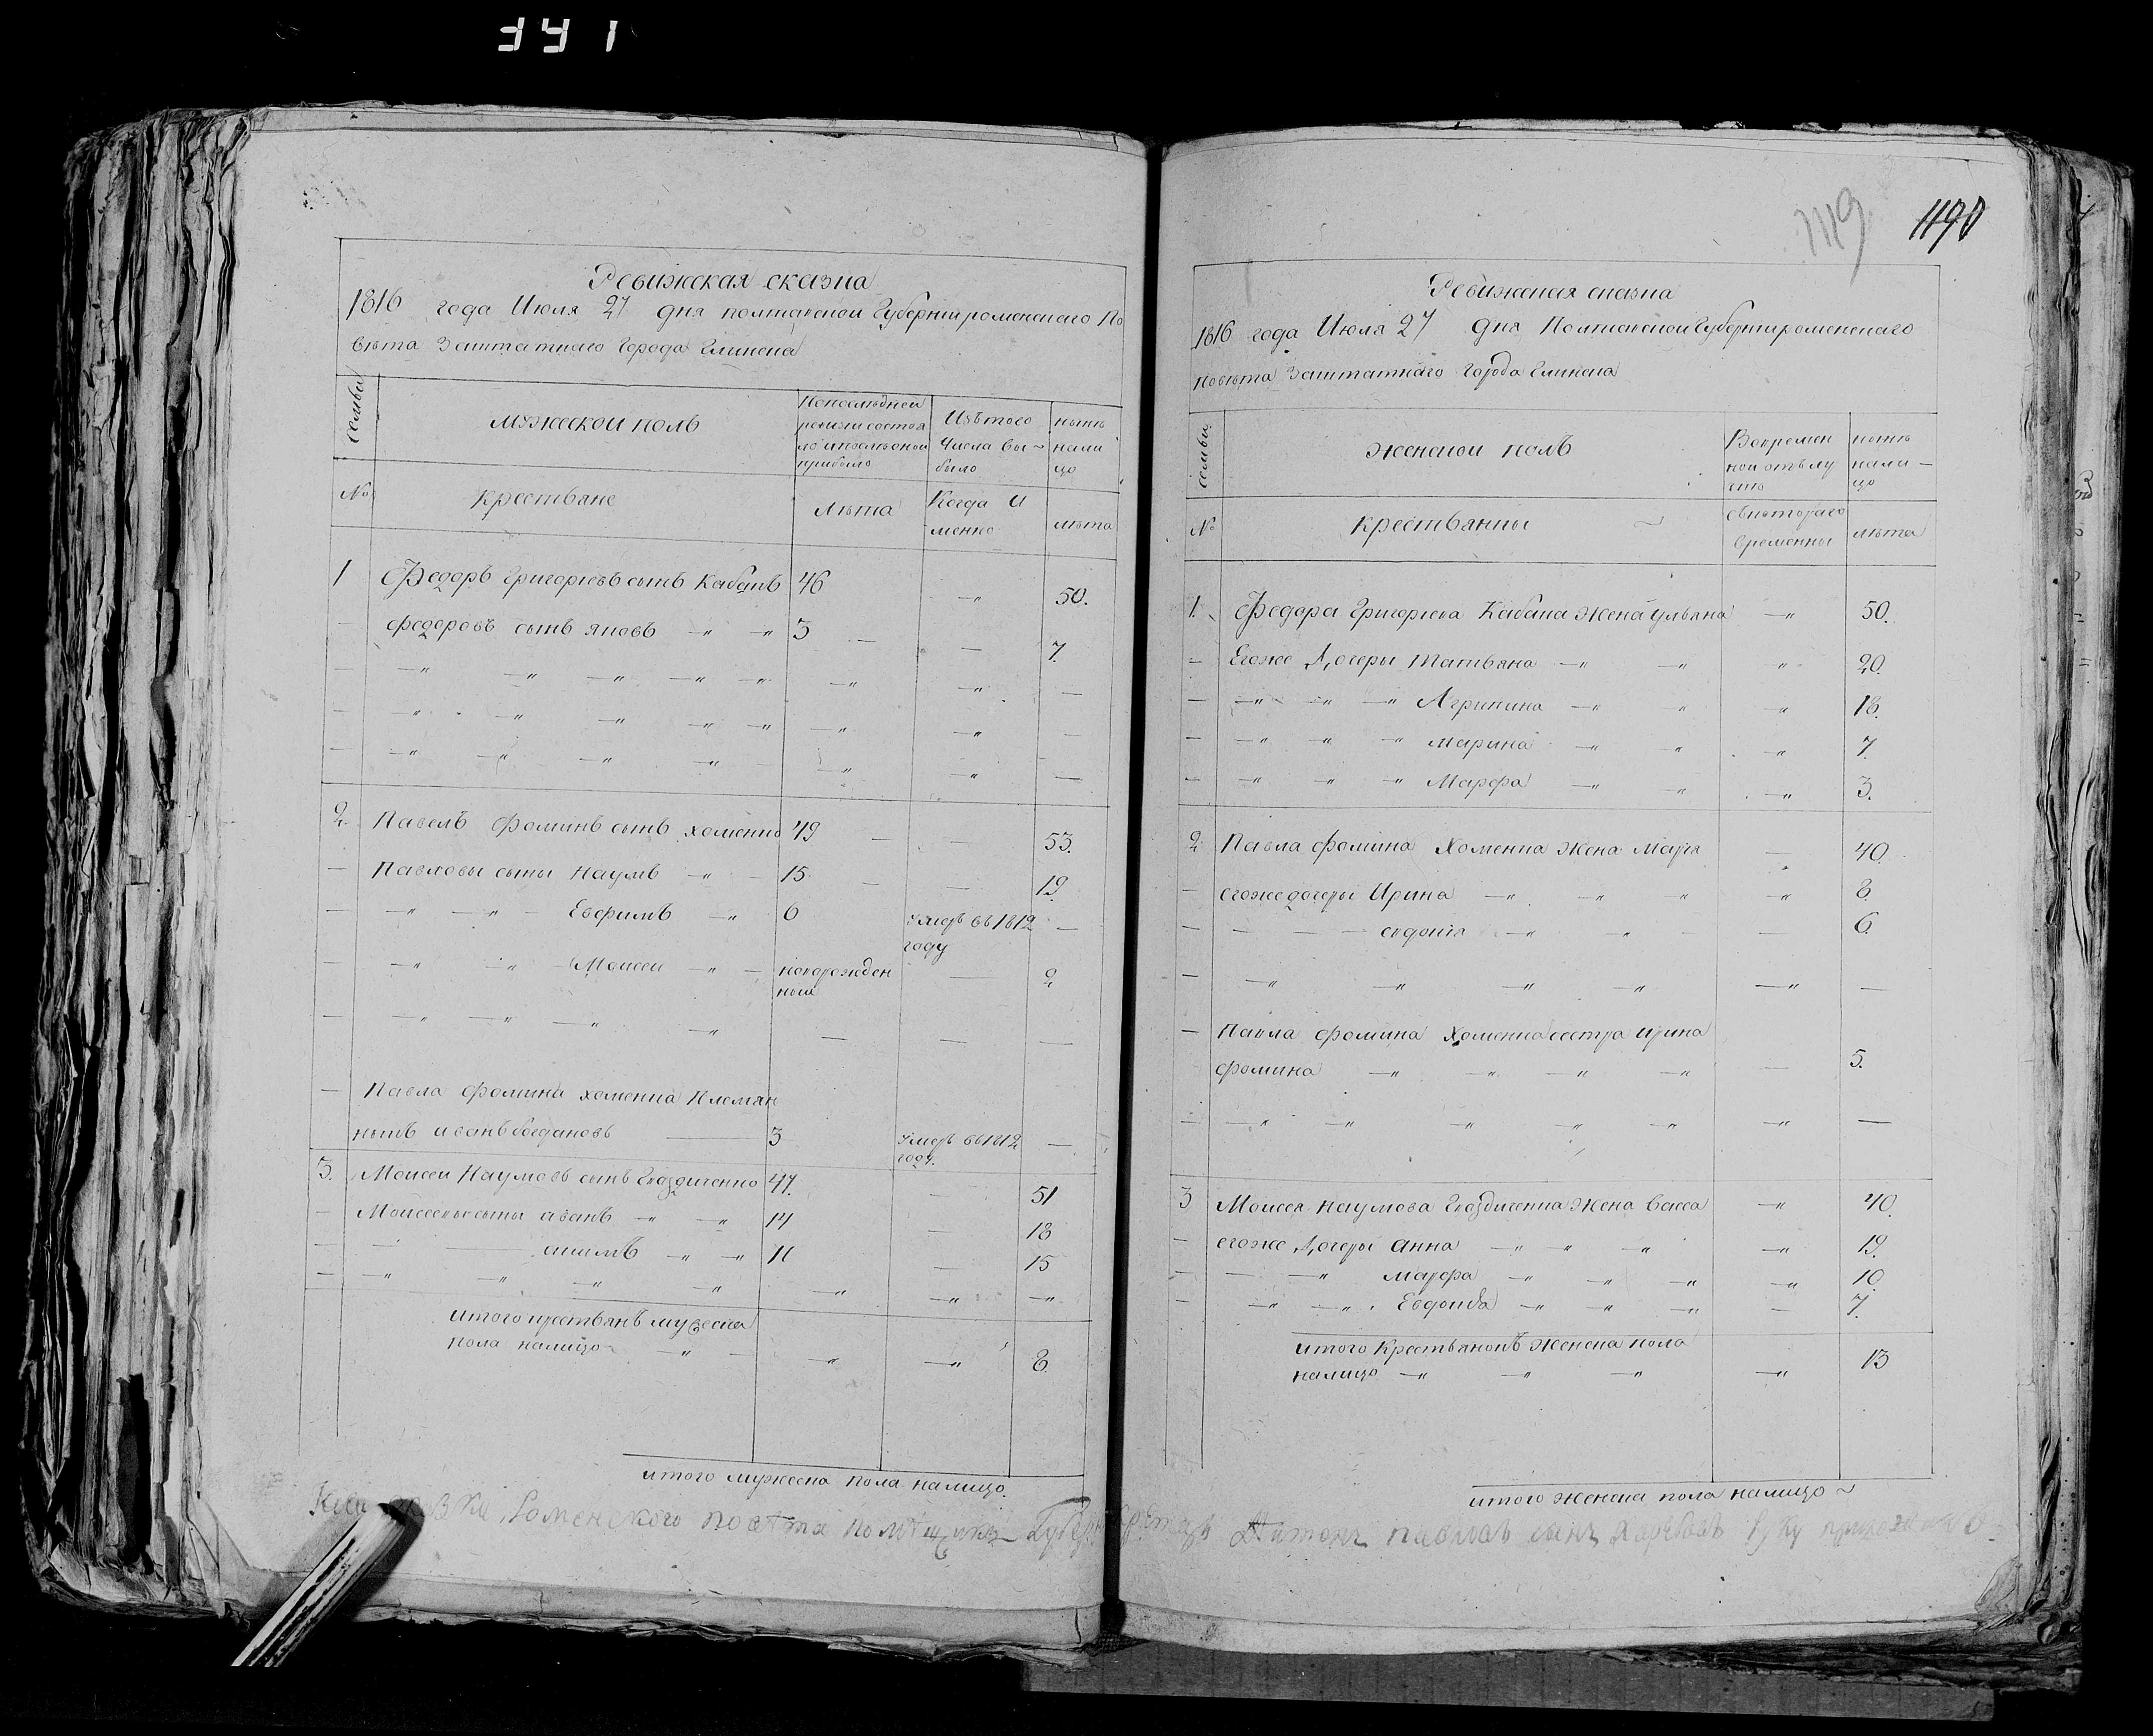 1119 1190
Ревижская сказка
1816 года Июля 27 дня полтавской Губернии роменскаго По
вѣта Заштатнаго Города Глинска
семьи
мужеской полъ
Попоследней ревизии состоя ло ипослѣоной прибыло
Изътого числа вы- было
нынѣ нали цо
№
крестьяне
лѣта
Когда И менно
лѣта
1 Федоръ Григориевъ сынъ Кабанъ 46 —〃 50.
— федоровъ сынъ яковъ —〃 〃 3 — — 7.
2. Павелъ Фоминъ сынъ хоменко 49 — — 53.
— Павловы сыны Наумъ —〃 — 15 — — 19.
— —〃 —〃 — Евфимъ —〃 6 Умеръ вь 1812 году —
— —〃 —〃 — Моисеи —〃 — новорожден ныи — 2
— Павла Фомина хоменка Племян
никъ иванъ богдановъ — 3 Умеръ вь 1812 году. —
3. Моисеи Наумовъ сынъ Гвоздиченко 47. — 51
— Моисеевы сыны иванъ —〃 —〃 14 — 18
— — — акимъ —〃 —〃 11 — 15
итого крестьянъ мужеска
пола налицо —〃 — —〃 —〃 8.
итого мужеска пола налицо.
Ревижская сказка
1816 года Июля 27 дня Полтавской Губернии роменскаго
повѣта Заштатнаго Города Глинска
семьи
женской полъ
Вовремен ной отълу чкѣ
нынѣ нали— цо
№
крестьянки ~
временны
лѣта
1. Федора Григориева Кабана Жена ульяна —〃 50.
— Егоже Дочеры Татьяна —〃 —〃 〃 20.
— —〃 —〃 —〃 Агрипина —〃 〃 〃 18.
— —〃 〃 〃 Марина —〃 〃 〃 7
— —〃 —〃 〃 Марфа —〃 —〃 —〃 3.
2 Павла фомина Хоменка жена Мария — 40.
— егоже дочеры Ирина —〃 —〃 〃 〃 8.
— — — — евдокия —〃 〃 — — 6.
— Павла фомина Хоменка сестра ирина
фомина —〃 —〃 —〃 —〃 — 5.
3 Моисея Наумова Гвоздиченка Жена Васса —〃 40.
— егоже Дочеры анна —〃 —〃 —〃 —〃 19.
— — —〃 марфа —〃 —〃 —〃 —〃 10
— —〃 —〃 Евдокия —〃 —〃 —〃 — 7.
итого Крестьянокъ женска пола
налицо —〃 —〃 —〃 —〃 13
итого женска пола налицо ~
Роменского повѣта помѣщикъ Антонъ павловъ сынъ руку приложилъ